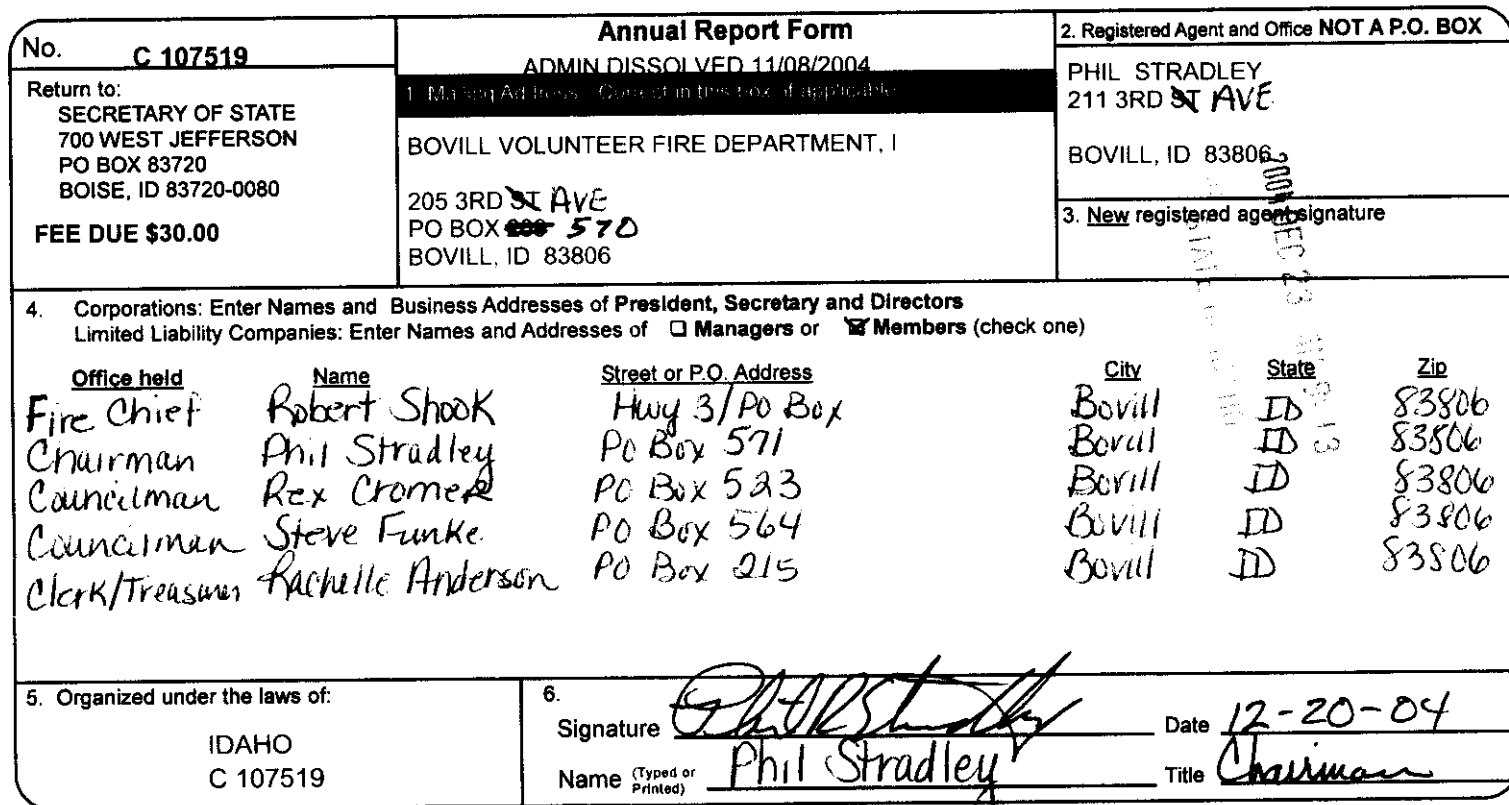 No. C 107519
Return to:
SECRETARY OF STATE
700 WEST JEFFERSON
PO BOX 83720
BOISE, ID 83720-0080
FEE DUE $30.00
Annual Report Form
ADMIN DISSOLVED 11/08/2004
1. Mailing Address - Correct in this box if applicable
BOVILL VOLUNTEER FIRE DEPARTMENT, I
205 3RD ST AVE
PO BOX 570
BOVILL, ID 83806
2. Registered Agent and Office NOT A P.O. BOX
PHIL STRADLEY
211 3RD ST AVE
BOVILL, ID 83806
3. New registered agent signature
4. Corporations: Enter Names and Business Addresses of President, Secretary and Directors
Limited Liability Companies: Enter Names and Addresses of ☐ Managers or ☑ Members (check one)
Office held Name Street or P.O. Address City State Zip
Fire Chief Robert Shook Hwy 3/PO Box Bovill ID 83806
Chairman Phil Stradley PO Box 571 Bovill ID 83806
Councilman Rex Cromer PO Box 523 Bovill ID 83806
Councilman Steve Funke PO Box 564 Bovill ID 83806
Clerk/Treasurer Rachelle Anderson PO Box 215 Bovill ID 83806
5. Organized under the laws of:
IDAHO
C 107519
6.
Signature Phil R Stradley Date 12-20-04
Name (Typed or Printed) Phil Stradley Title Chairman